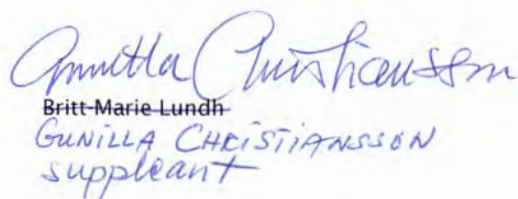 Gunilla Christiansson
Britt-Marie Lundh
GUNILLA CHRISTIANSSON
suppleant